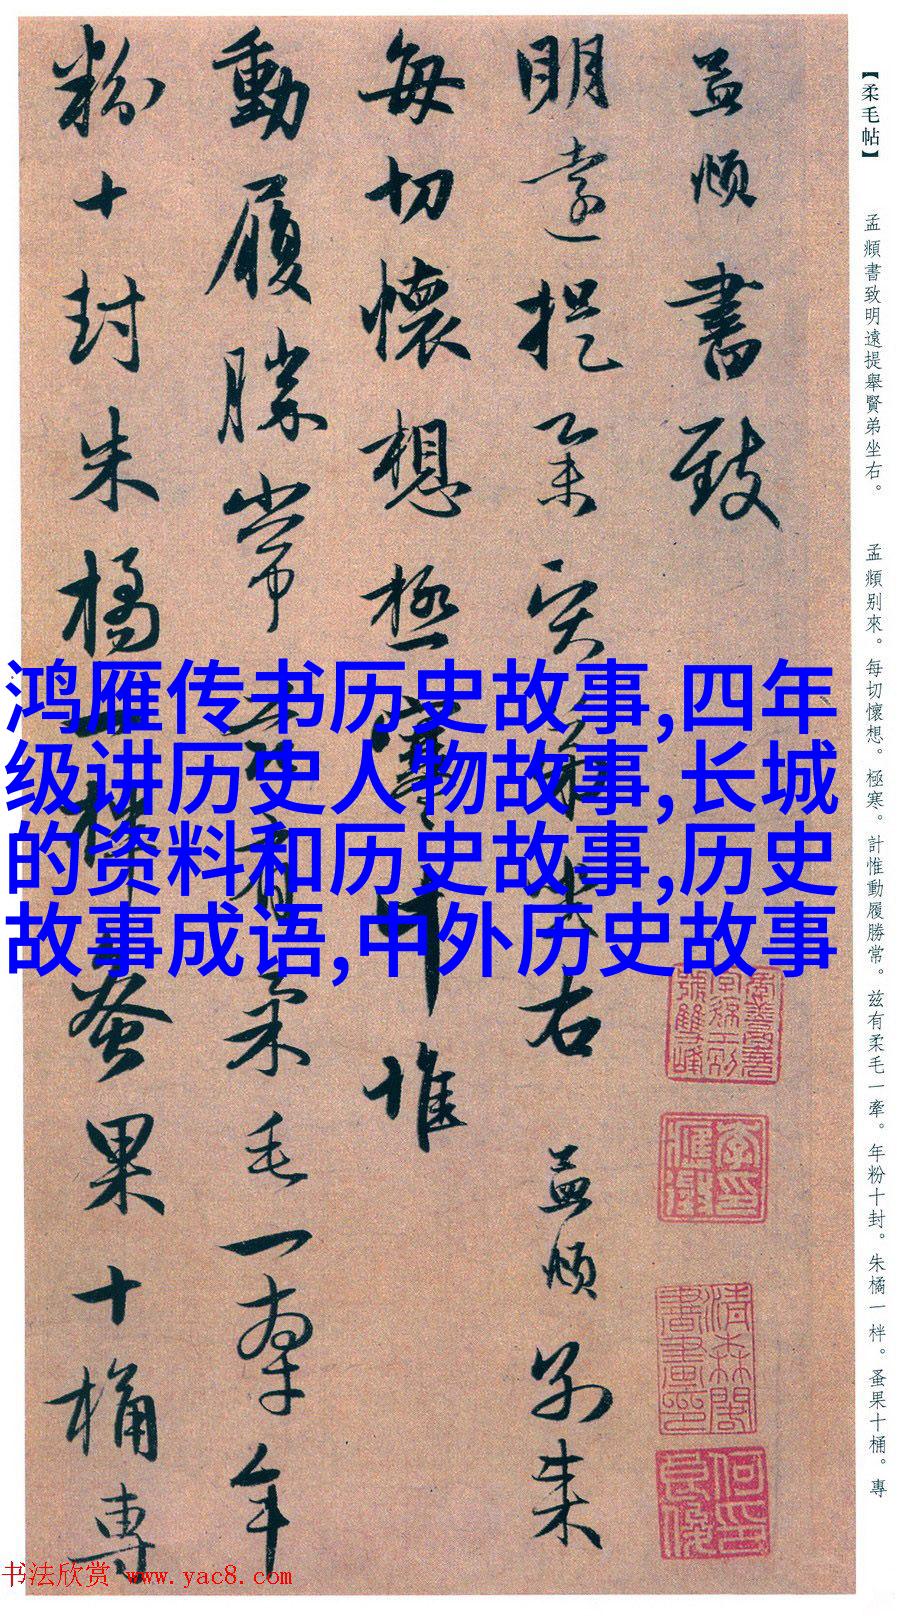 【柔毛帖】
孟頫書致明遠提舉賢弟坐右。
孟頫别來。每切懷想。極寒。計惟動履勝常。兹有柔毛一牽。年粉十封。朱橘一柈。蚤果十桶。專
孟頫書致
明遠提舉賢弟坐右 孟頫別來
每切懷想極寒計惟
動履勝常兹有柔毛一牽年
粉十封朱橘一柈蚤果十桶專
鸿雁传书历史故事,四年
级讲历史人物故事,长城
的资料和历史故事,历史
故事成语,中外历史故事
书法欣赏 www.yac8.com